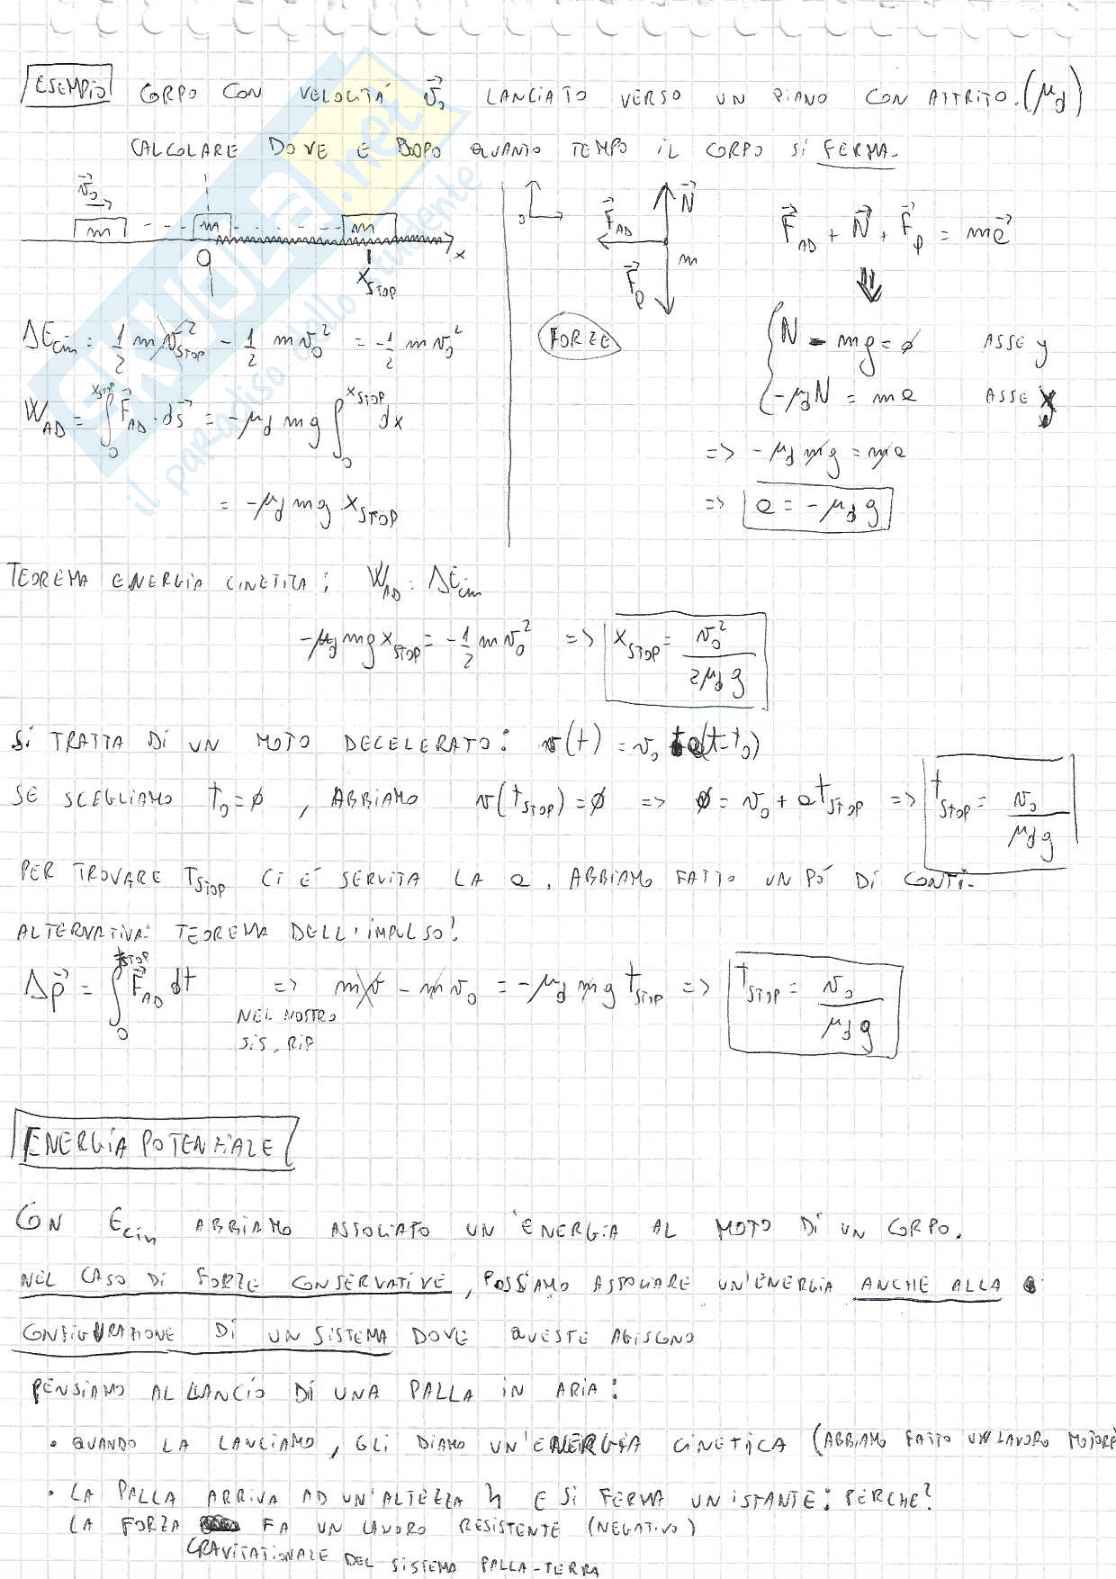 ESEMPIO CORPO CON VELOCITÀ v⃗₀ LANCIATO VERSO UN PIANO CON ATTRITO. (μd)
CALCOLARE DOVE E DOPO QUANTO TEMPO IL CORPO SI FERMA.
v⃗₀
m m m
O x_STOP x
F⃗_AD N⃗ F⃗_p m
F⃗_AD + N⃗ + F⃗_p = ma⃗
ΔE_cin = 1/2 m v²_STOP - 1/2 m v₀² = -1/2 m v₀²
FORZE
N - mg = ∅ ASSE y
-μd N = ma ASSE x
W_AD = ∫₀^x_STOP F⃗_AD · ds⃗ = -μd mg ∫₀^x_STOP dx
=> -μd mg = ma
= -μd mg x_STOP
=> a = -μd g
TEOREMA ENERGIA CINETICA: W_AD = ΔE_cin
-μd mg x_STOP = -1/2 m v₀² => x_STOP = v₀² / 2μd g
SI TRATTA DI UN MOTO DECELERATO: v(t) = v₀ + a(t-t₀)
SE SCEGLIAMO t₀ = ∅, ABBIAMO v(t_STOP) = ∅ => ∅ = v₀ + a t_STOP => t_STOP = v₀ / μd g
PER TROVARE T_STOP CI È SERVITA LA a. ABBIAMO FATTO UN PÒ DI CONTI.
ALTERNATIVA: TEOREMA DELL'IMPULSO!
Δp⃗ = ∫₀^t_STOP F⃗_AD dt => mv - mv₀ = -μd mg t_STOP => t_STOP = v₀ / μd g
NEL NOSTRO
SIS. RIF
ENERGIA POTENZIALE
CON E_cin ABBIAMO ASSOCIATO UN'ENERGIA AL MOTO DI UN CORPO.
NEL CASO DI FORZE CONSERVATIVE, POSSIAMO ASSOCIARE UN'ENERGIA ANCHE ALLA
CONFIGURAZIONE DI UN SISTEMA DOVE QUESTE AGISCONO
PENSIAMO AL LANCIO DI UNA PALLA IN ARIA:
• QUANDO LA LANCIAMO, GLI DIAMO UN'ENERGIA CINETICA (ABBIAMO FATTO UN LAVORO MOTORE
• LA PALLA ARRIVA AD UN'ALTEZZA h E SI FERMA UN ISTANTE: PERCHE?
LA FORZA FA UN LAVORO RESISTENTE (NEGATIVO)
GRAVITAZIONALE DEL SISTEMA PALLA-TERRA
SKUOLA.net
il paradiso dello studente